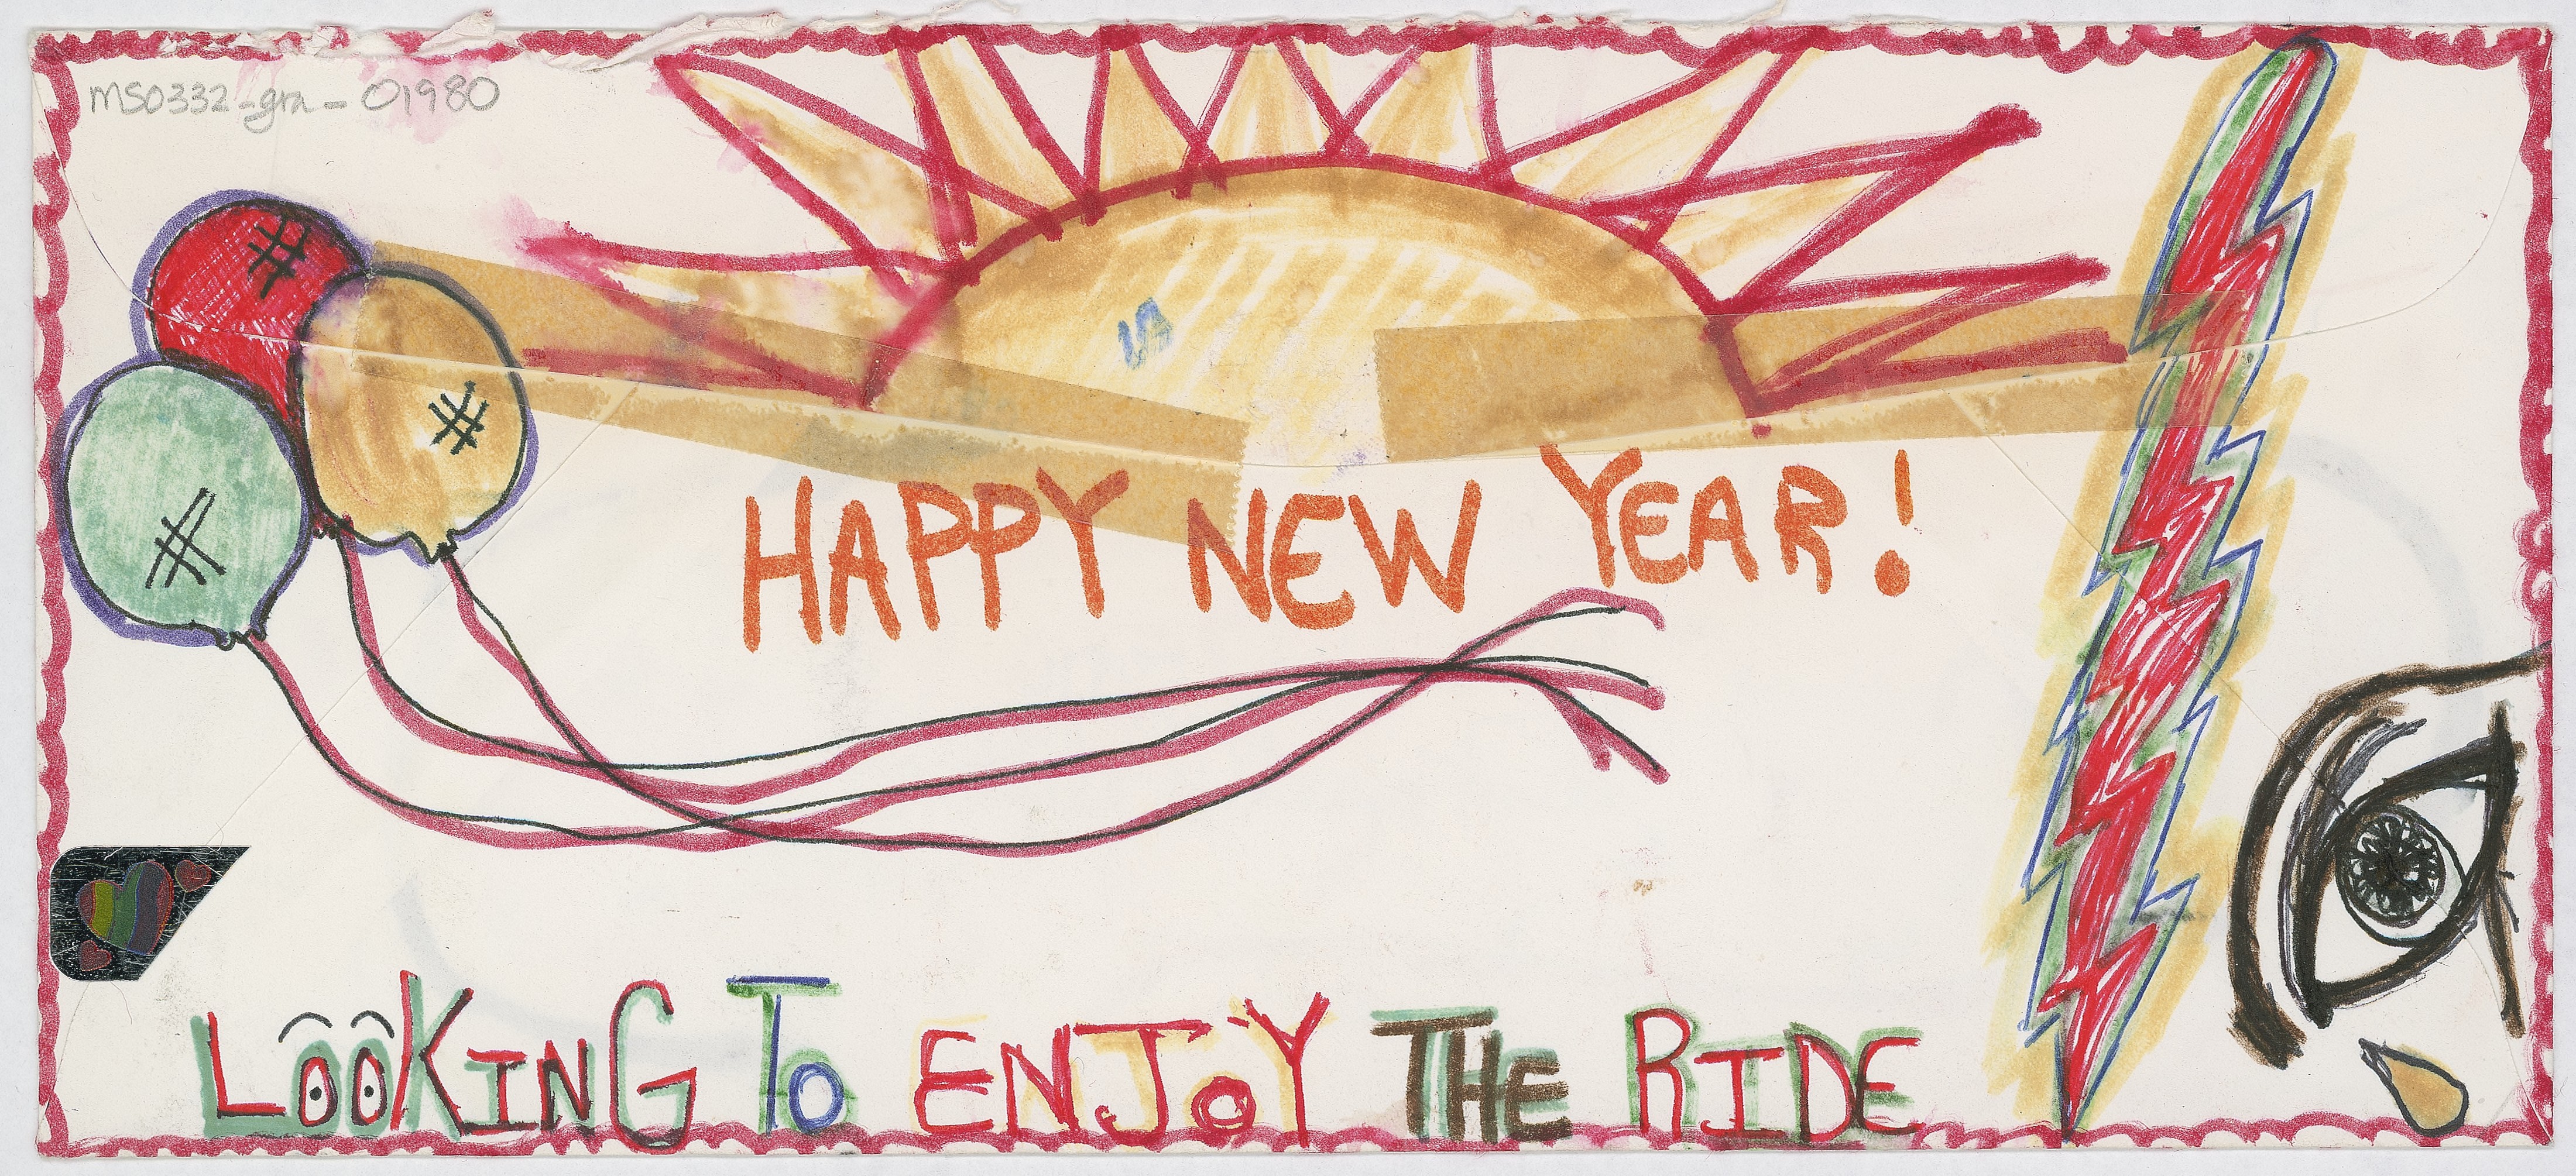 MS0332-gra-01980
HAPPY NEW YEAR!
LOOKING TO ENJOY THE RIDE